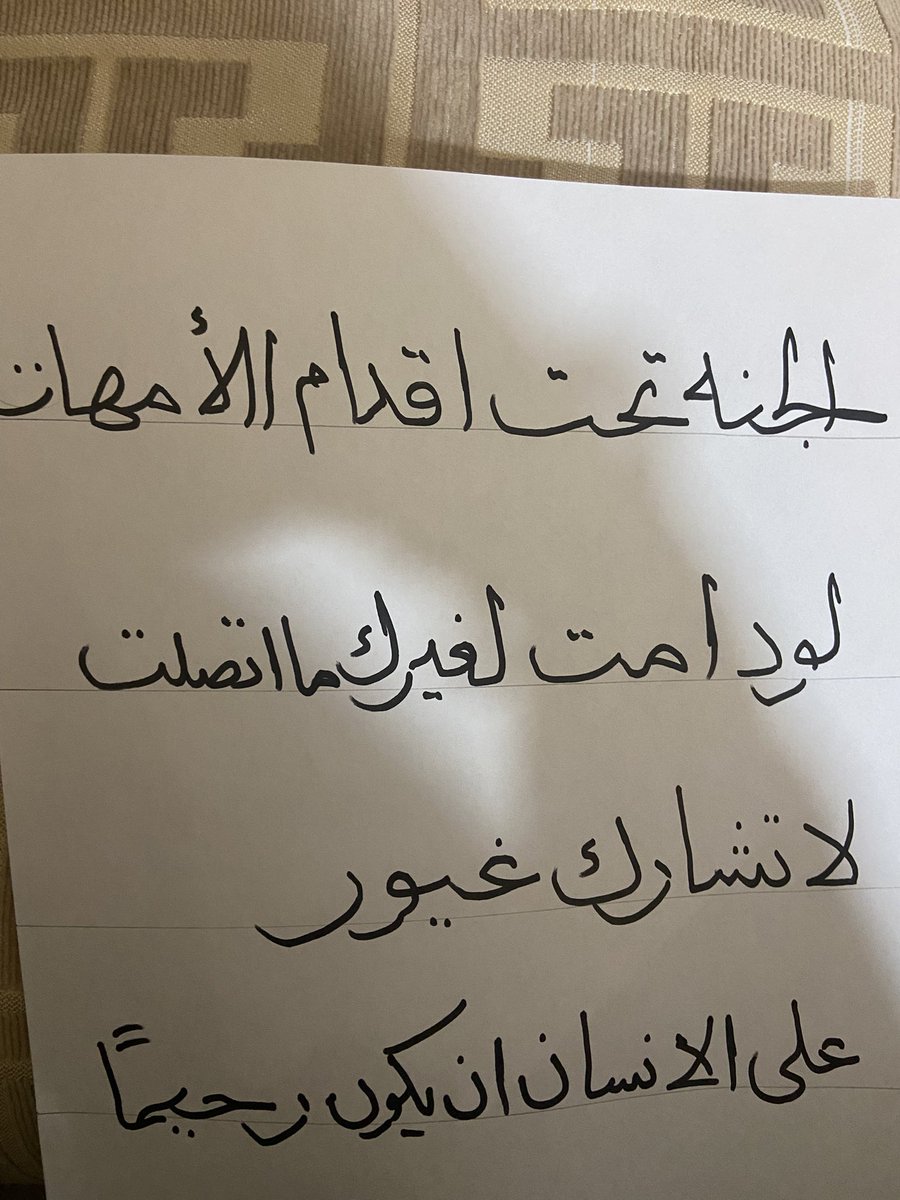 الجنه تحت اقدام الأمهات
لودامت لغيرك ما اتصلت
لا تشارك غيور
على الانسان ان يكون رحيمًا